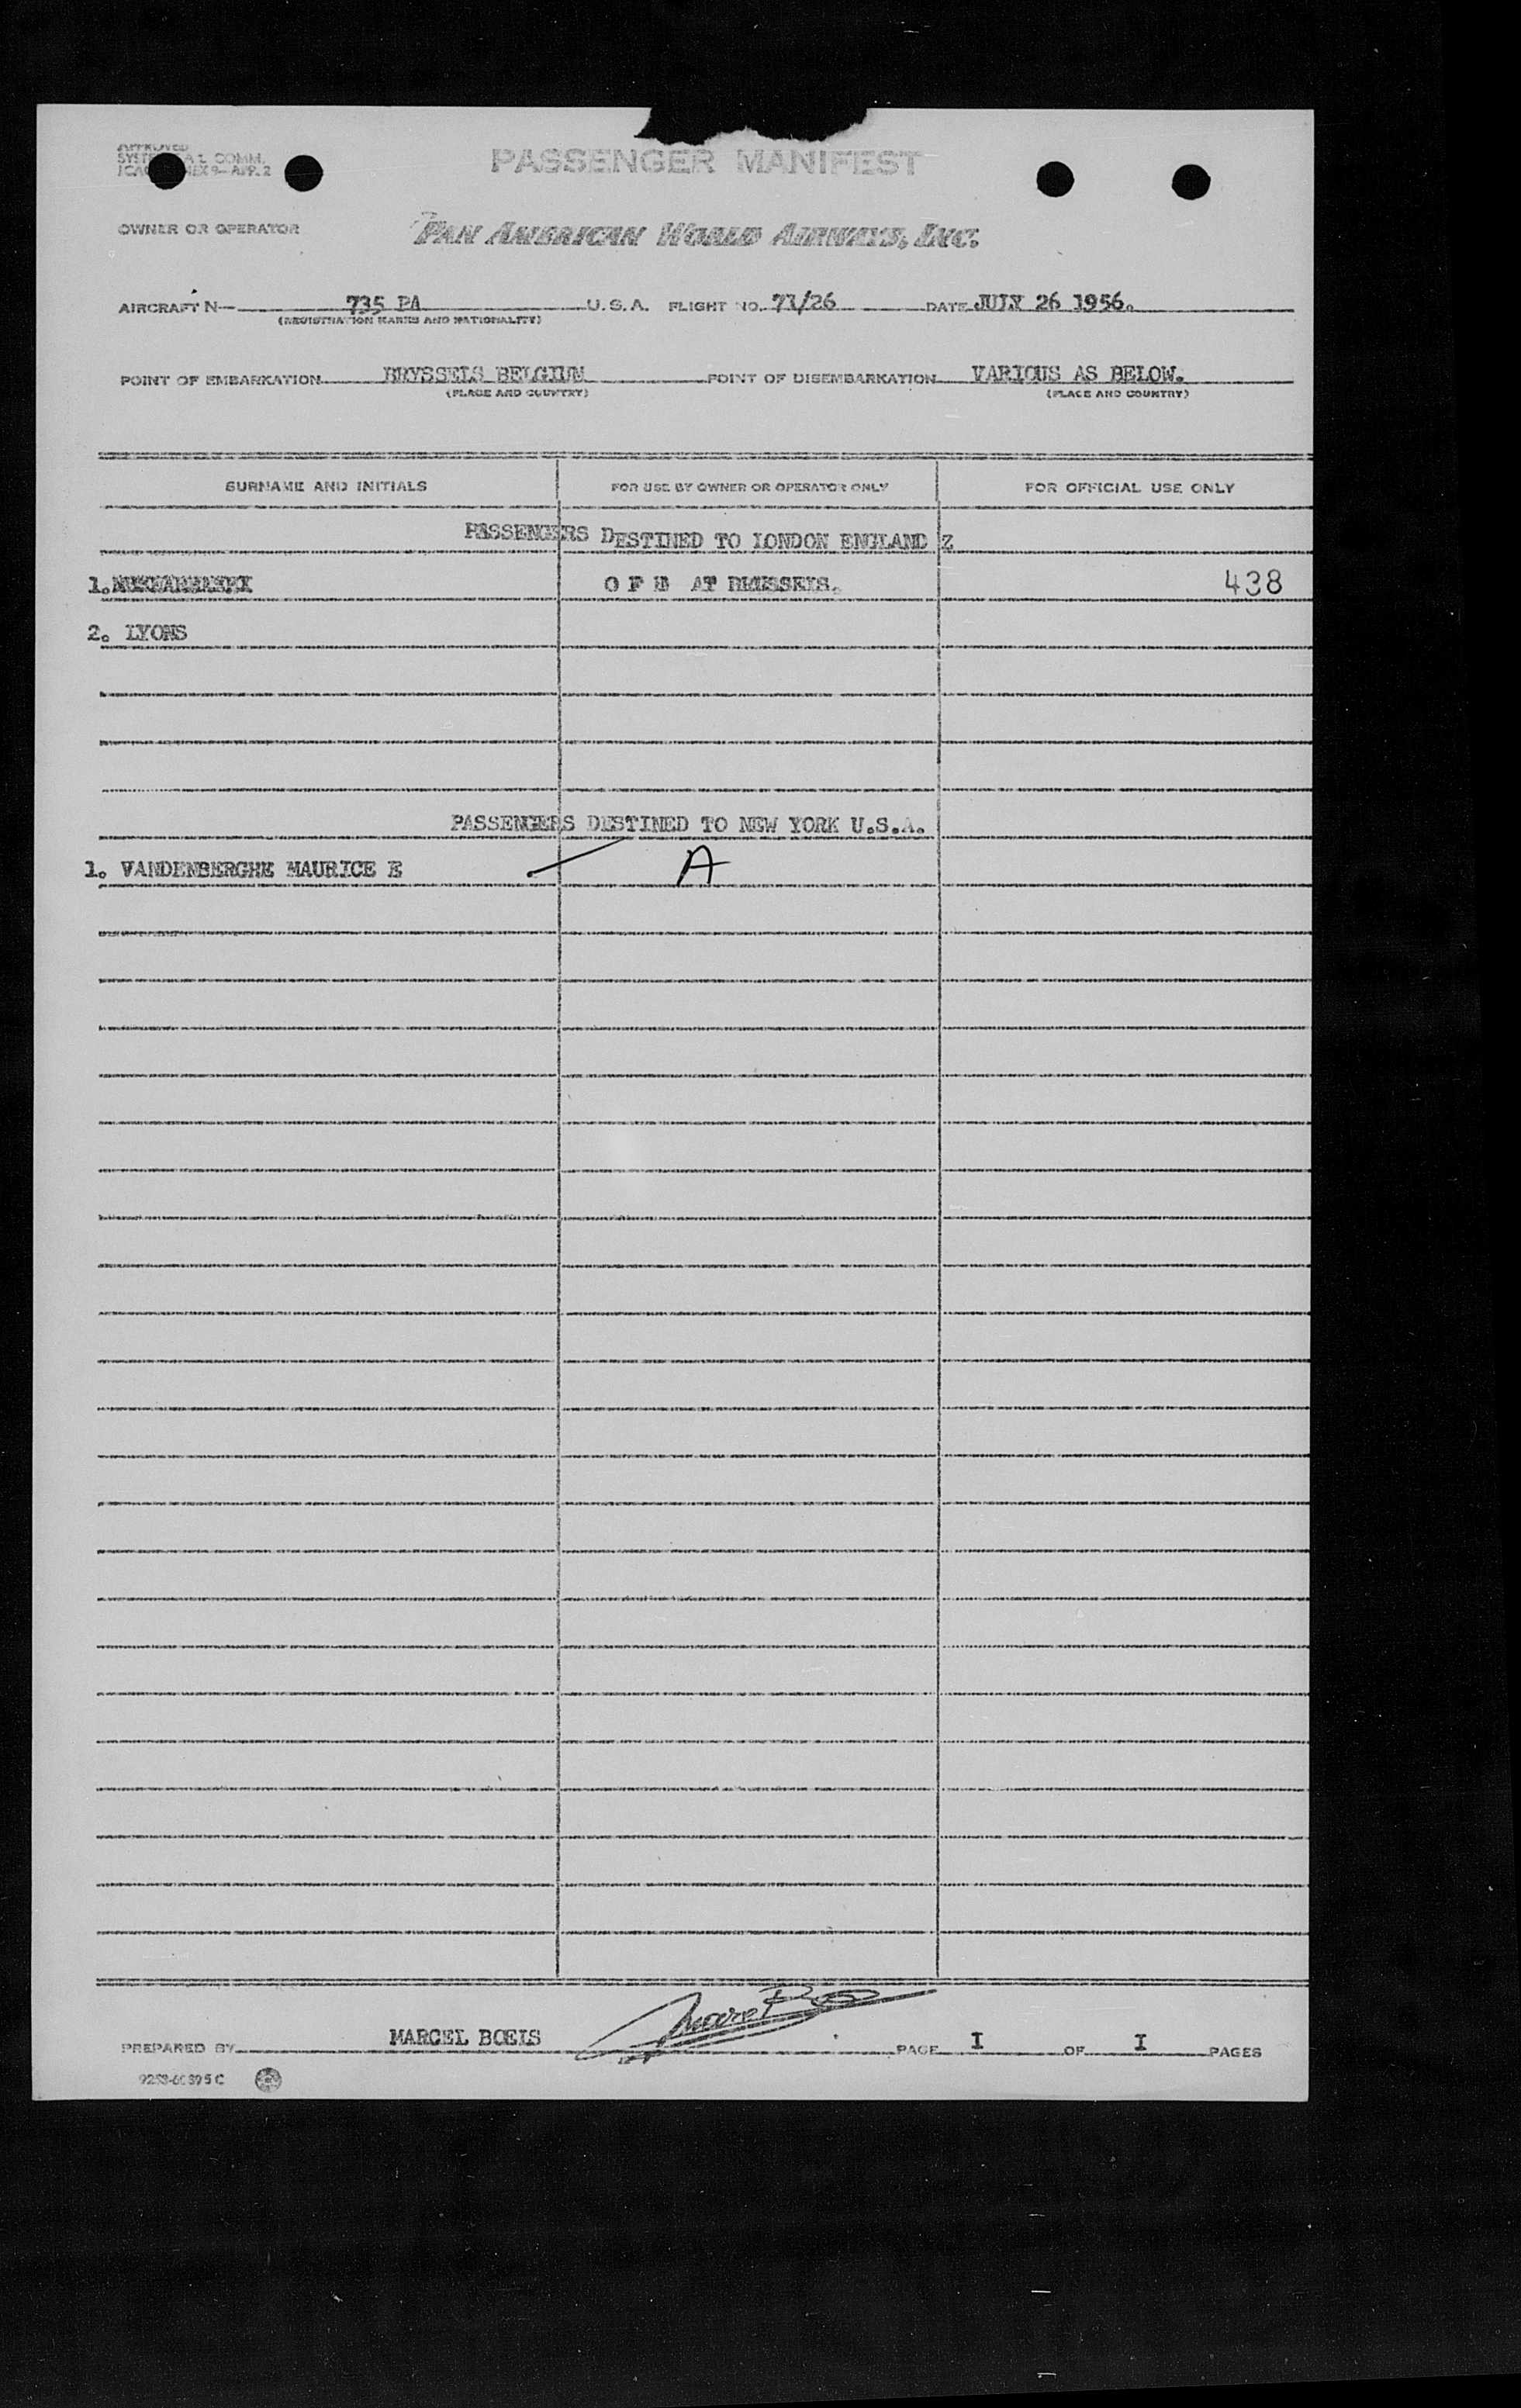 APPROVED
SYST AL COMM.
ICAO NEX 9—APP. 2
PASSENGER MANIFEST
OWNER OR OPERATOR PAN AMERICAN WORLD AIRWAYS, INC.
AIRCRAFT N— 735 PA U.S.A. FLIGHT NO. 71/26 DATE JULY 26 1956.
(REGISTRATION MARKS AND NATIONALITY)
POINT OF EMBARKATION BRYSSELS BELGIUM POINT OF DISEMBARKATION VARIOUS AS BELOW.
(PLACE AND COUNTRY) (PLACE AND COUNTRY)
SURNAME AND INITIALS FOR USE BY OWNER OR OPERATOR ONLY FOR OFFICIAL USE ONLY
PASSENGERS DESTINED TO LONDON ENGLAND Z
1. AT 438
2. LYONS
PASSENGERS DESTINED TO NEW YORK U.S.A.
1. VANDENBERGHE MAURICE E A
PREPARED BY MARCEL BOEIS PAGE I OF I PAGES